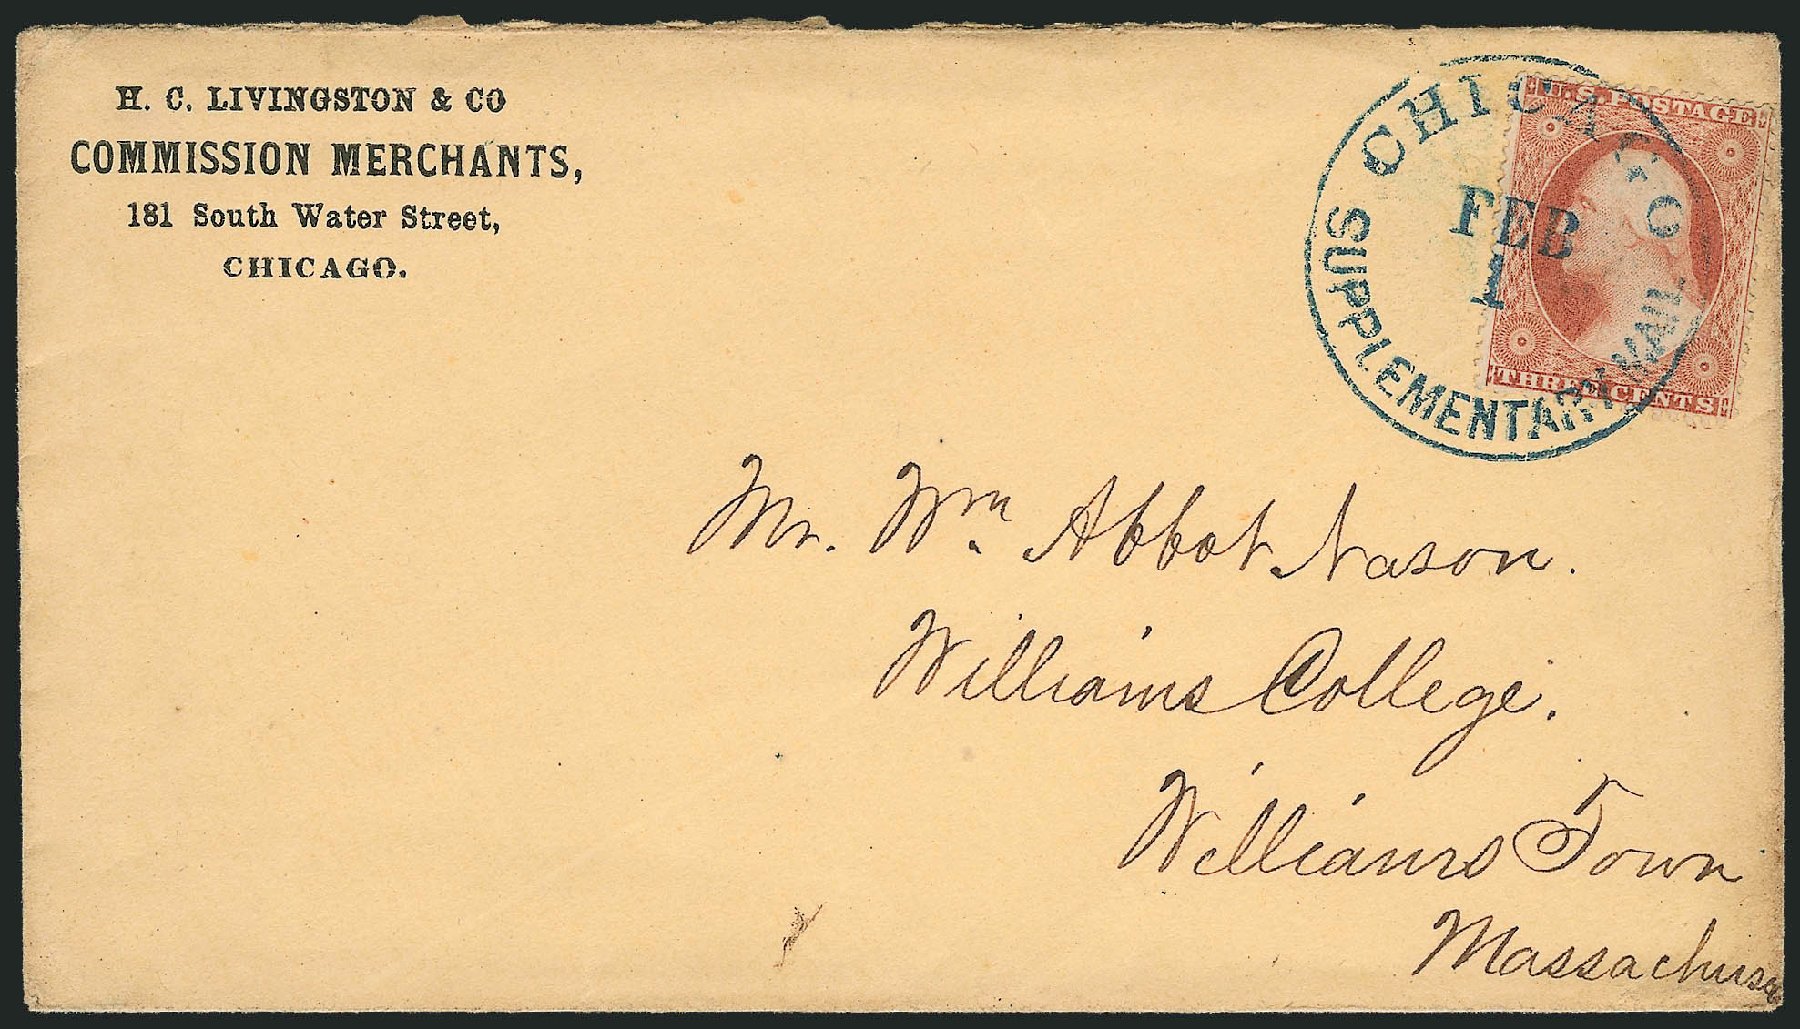 H. C. LIVINGSTON & CO
COMMISSION MERCHANTS,
181 South Water Street,
CHICAGO.
CHICAGO
FEB
1
SUPPLEMENTARY MAIL
U.S. POSTAGE
THREE CENTS
Mr. Wm. Abbot Nason.
Williams College.
Williams Town
Massachuse